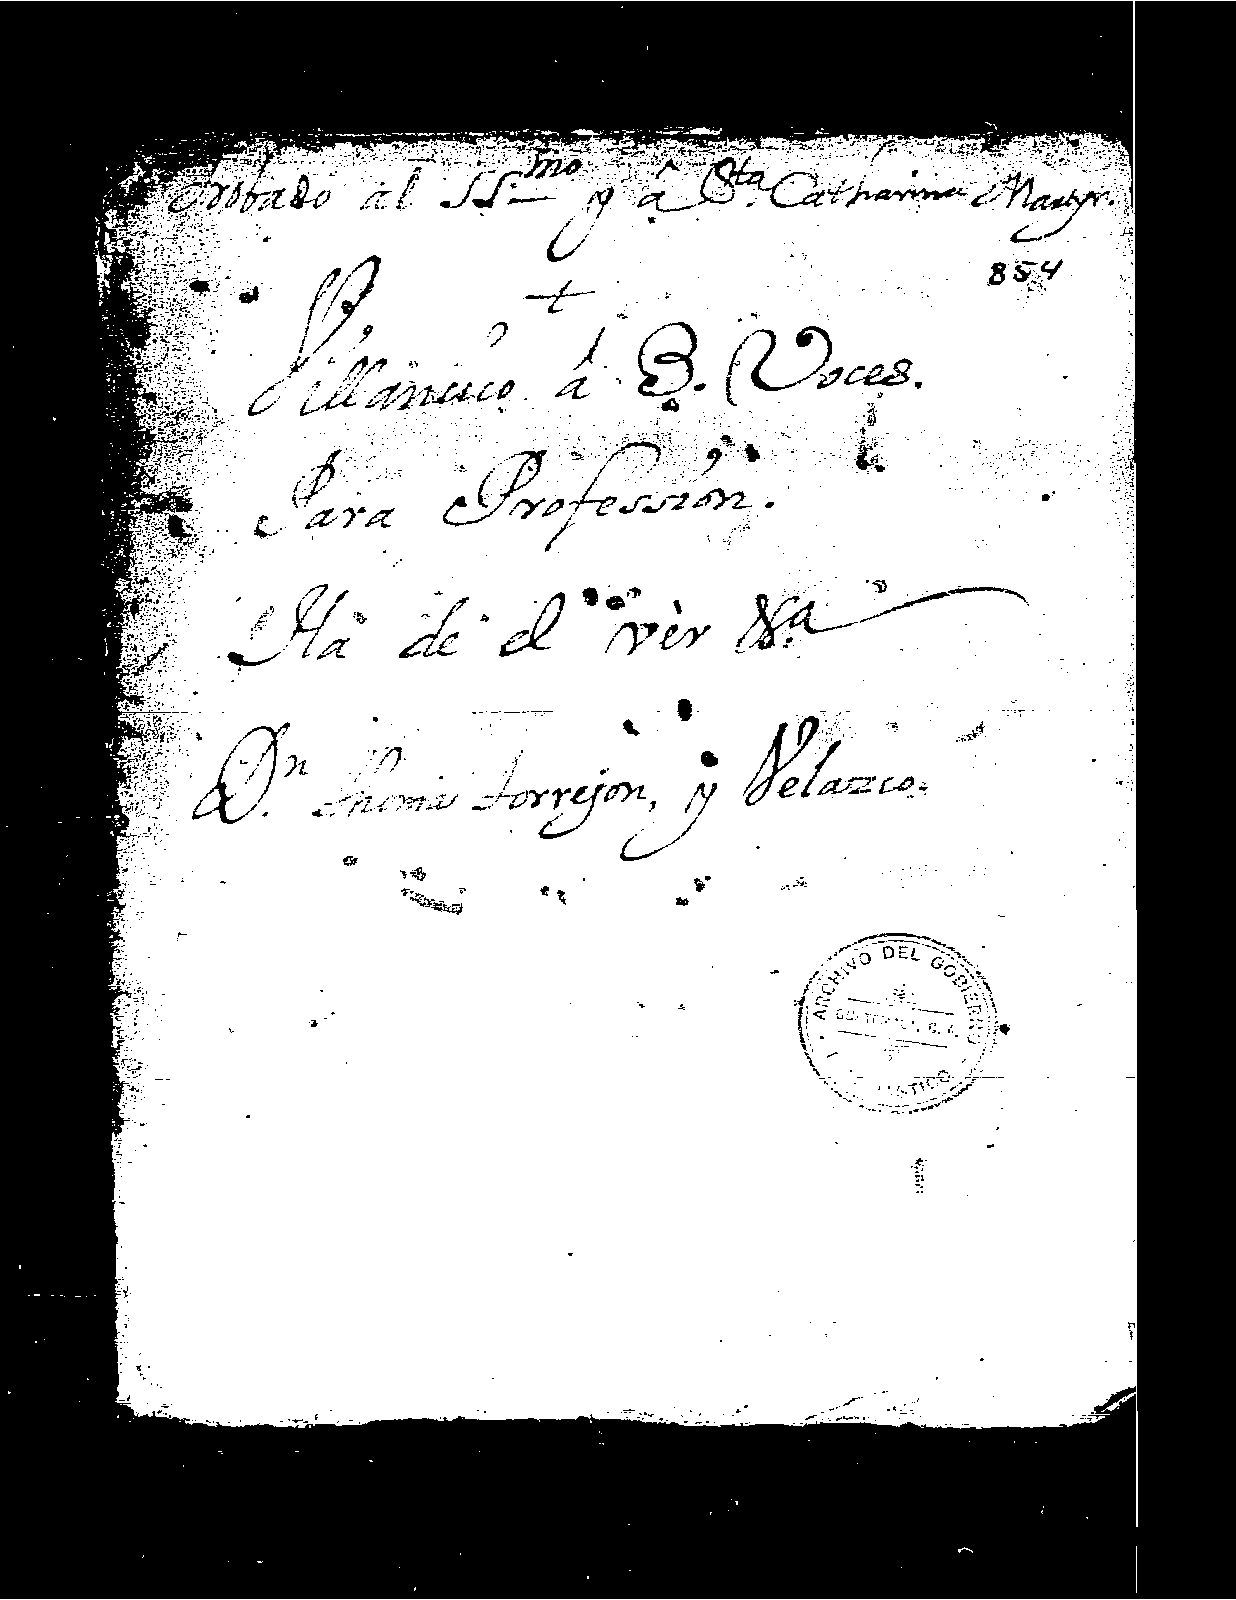 al SS.mo y â Sta. Catharina Martyr.
854
+
Villancico â 3. Voces.
Para Professiòn.
Ha de el vèr Sa.
Dn. Thoma Torrejon, y Velazco.
ARCHIVO DEL GOBIERNO